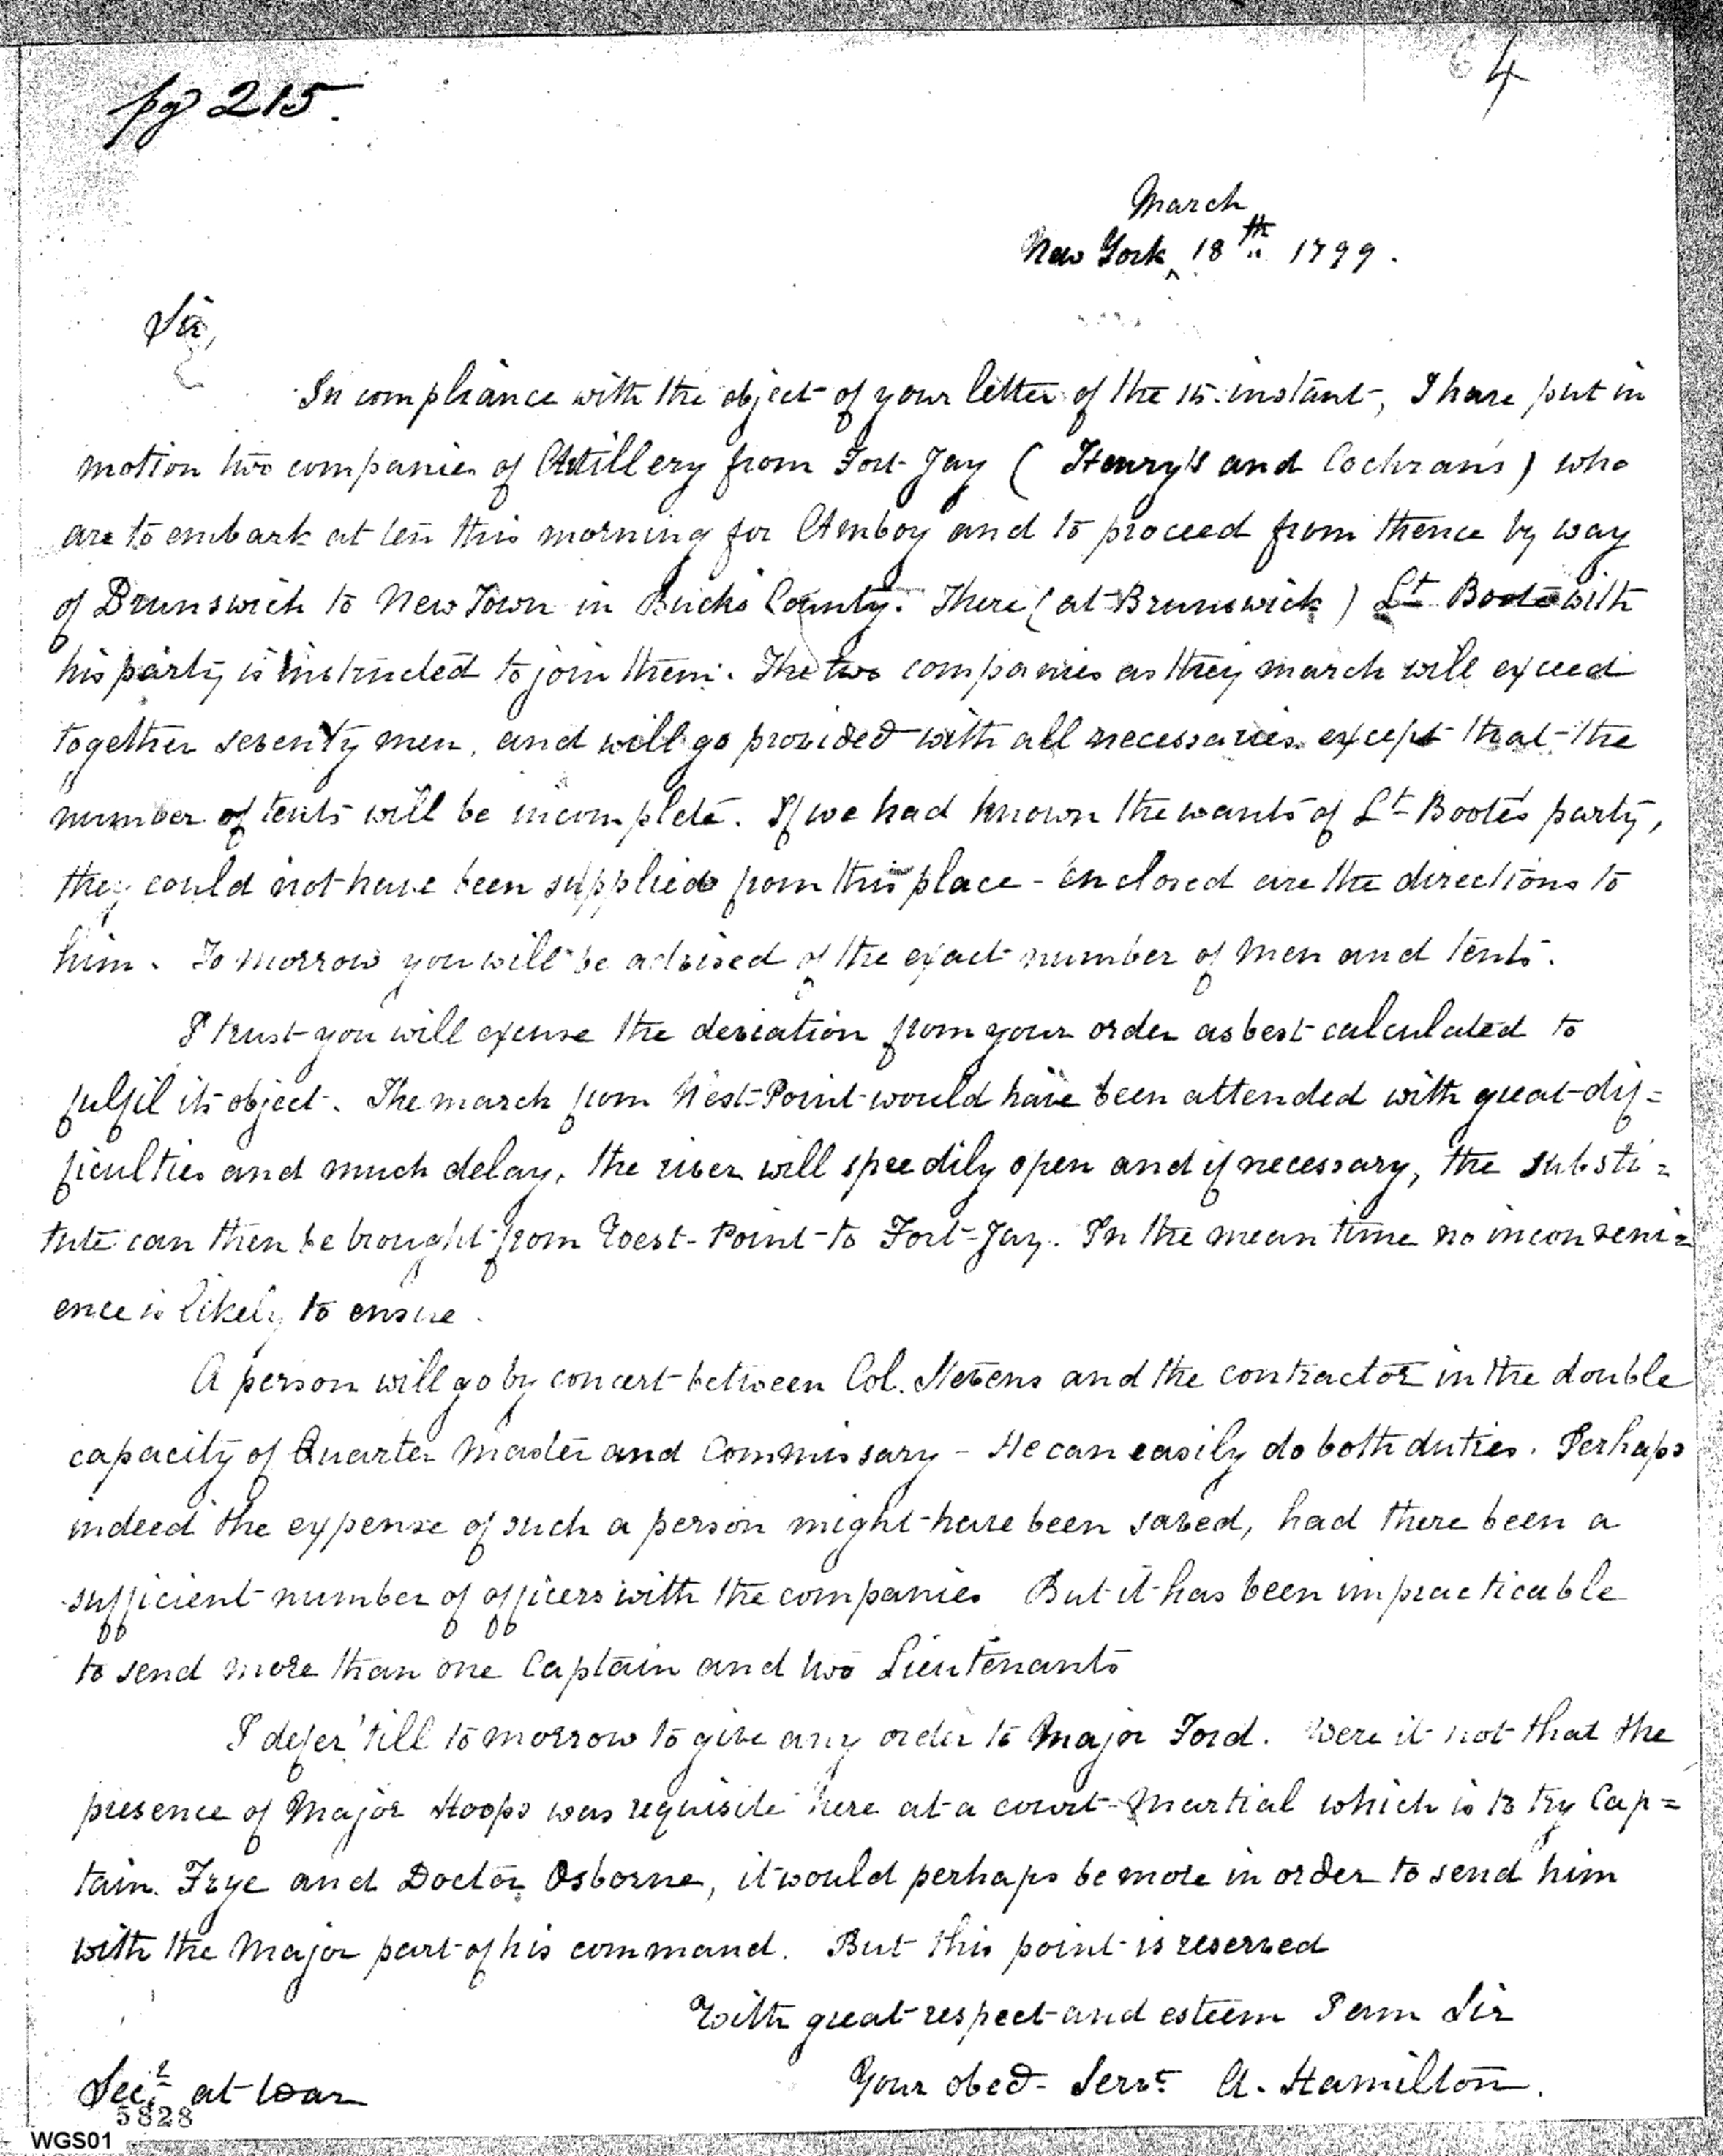 pg 215.
4
March
New York ^ 18th 1799.
Sir,
In compliance with the object of your letter of the 15 instant, I have put in
motion two companies of Artillery from Fort Jay ( Henry's and Cochran's ) who
are to embark at ten this morning for Amboy and to proceed from thence by way
of Brunswick to New Town in Bucks County. There ( at Brunswick ) Lt Boote with
his party is instructed to join them. The two companies as they march will exceed
together seventy men, and will go provided with all necessaries except that the
number of tents will be incomplete. If we had known the wants of Lt Boote's party,
they could not have been supplied from this place - enclosed are the directions to
him. To morrow you will be advised of the exact number of men and tents.
I trust you will excuse the deviation from your order as best calculated to
fulfil its object. The march from West-Point would have been attended with great dif=
ficulties and much delay, the river will speedily open and if necessary, the substi=
tute can then be brought from West-Point to Fort-Jay. In the mean time no inconveni=
ence is likely to ensue.
A person will go by concert between Col. Stevens and the contractor in the double
capacity of Quarter Master and Commissary - He can easily do both duties. Perhaps
indeed the expense of such a person might have been saved, had there been a
sufficient number of officers with the companies But it has been impracticable
to send more than one Captain and two Lieutenants
I defer 'till to morrow to give any order to Major Ford. Were it not that the
presence of Major Hoops was requisite here at a court-Martial which is to try Cap=
tain Frye and Doctor Osborne, it would perhaps be more in order to send him
with the Major part of his command. But this point is reserved
With great respect and esteem I am Sir
Your obed Servt A. Hamilton.
Secy at War
5828
WGS01